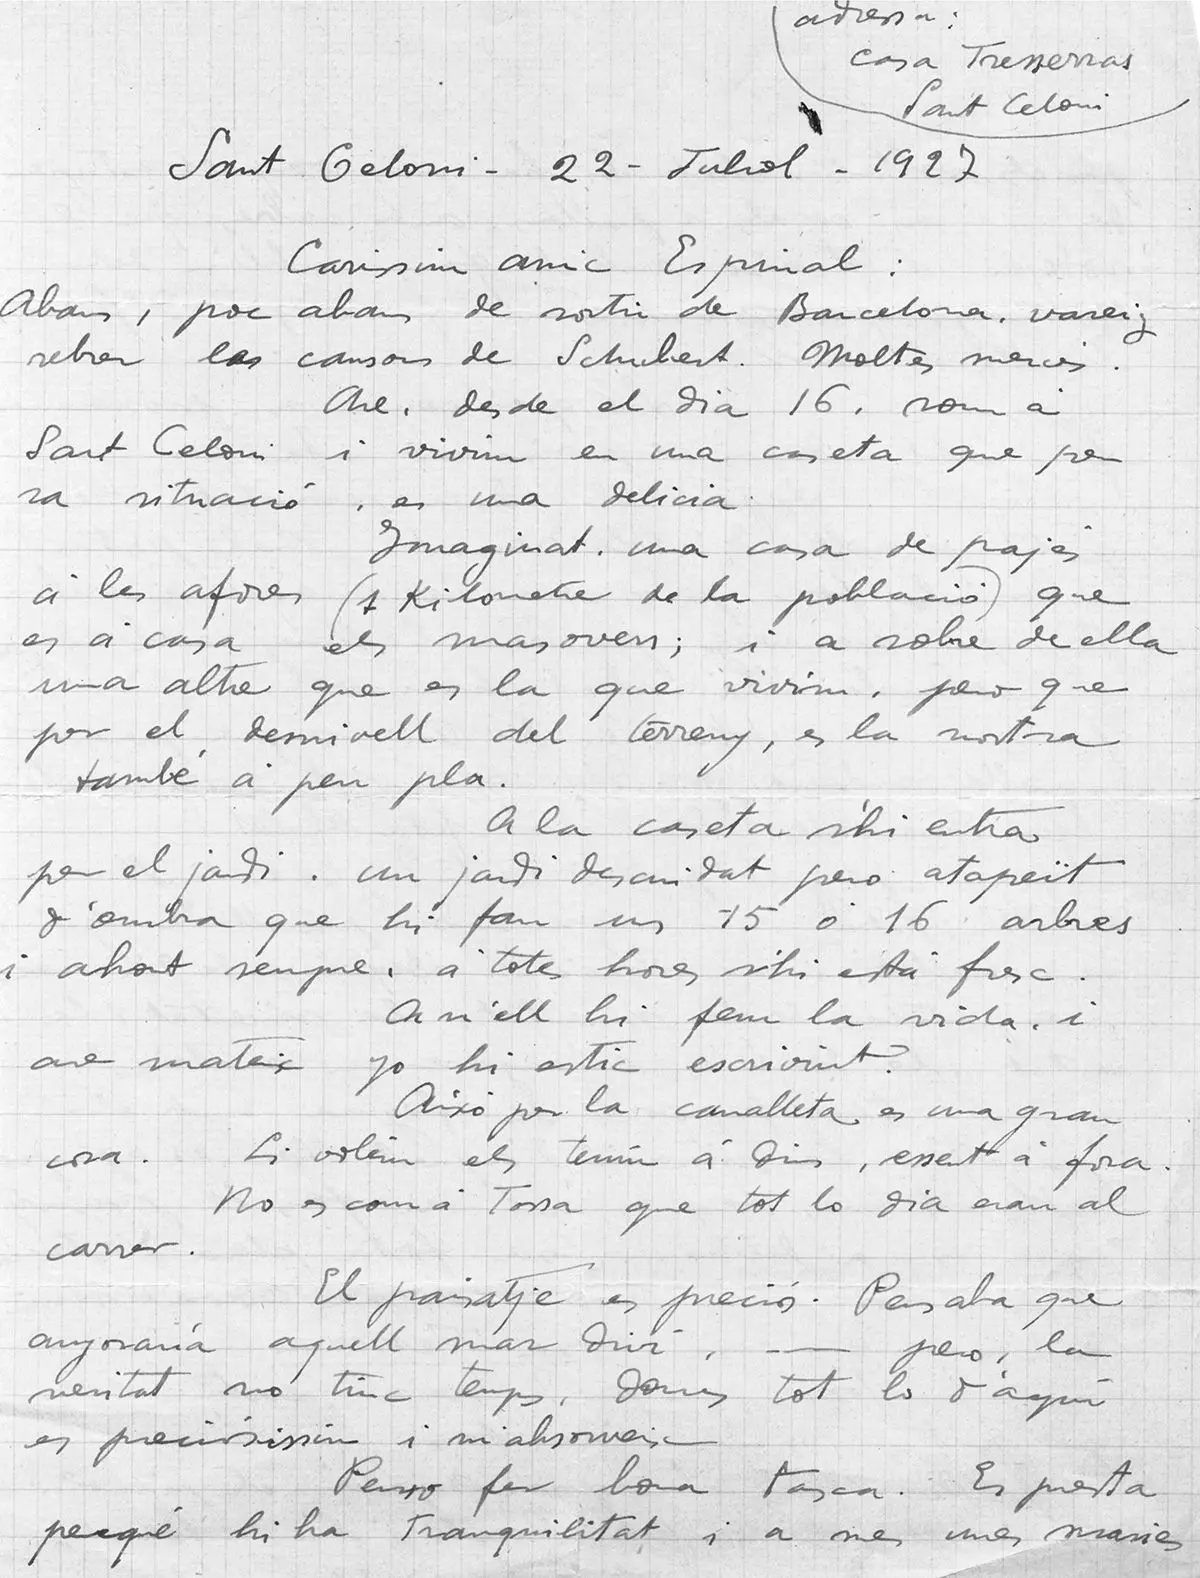 adressa:
casa Tresserras
Sant Celoni
Sant Celoni - 22 - Juliol - 1927
Carissim amic Espinal:
Abans, poc abans de sortir de Barcelona, vareig
rebrer las cansons de Schubert. Moltes mercés.
Are, desde el dia 16, som á
Sant Celoni i vivim en una caseta que per
sa situació, es una delicia.
Imaginat, una casa de pajés
á les afores (1 Kilometre de la població) que
es á casa els masovers; i a sobre de ella
una altre que es la que vivim, pero que
per el desnivell del terreny, es la nostra
també á peu pla.
A la caseta s'hi entra
per el jardi. un jardi descuidat pero atapeït
d'ombra que hi fan uns 15 ó 16 arbres
i ahont sempre, á totes hores s'hi está fresc.
An'ell hi fem la vida, i
are mateix jo hi estic escrivint.
Aixó per la canalleta, es una gran
cosa. Si volém els tením á dins, essent á fora.
No es com á Tossa que tot lo dia eran al
carrer.
El paisatje es preciós. Pensaba que
anyoraría aquell mar diví, — pero, la
veritat no tinc temps, doncs tot lo d'aquí
es preciósissim i m'absorveix
Penso fer bona tasca. Es presta
perqué hi ha tranquilitat i a mes unes